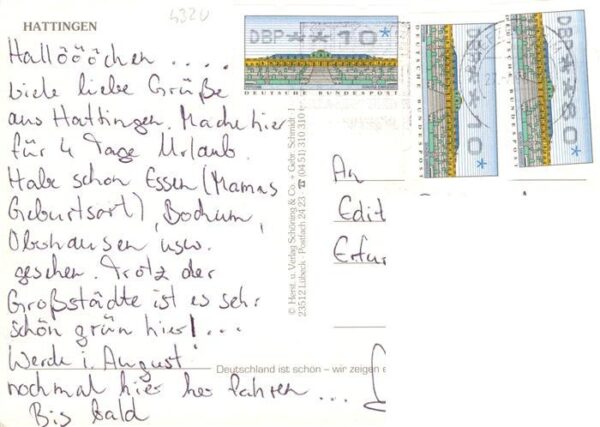 4320
HATTINGEN
Hallöööchen .....
viele liebe Grüße
aus Hattingen. Mache hier
für 4 Tage Urlaub.
Habe schon Essen (Mamas
Geburtsort), Bochum,
Oberhausen usw.
gesehen. Trotz der
Großstädte ist es sehr
schön grün hier! ...
Werde i. August
nochmal hier her fahren ...
Bis bald
© Herst. u. Verlag Schöning & Co. + Gebr. Schmidt
23512 Lübeck · Postfach 24 23 · ☎ (04 51) 310 310
Deutschland ist schön – wir zeigen e
DBP**10*
DEUTSCHE BUNDESPOST
DBP***10*
DEUTSCHE BUNDESPOST
DBP***80*
DEUTSCHE BUNDESPOST
An
Edit
Erfur